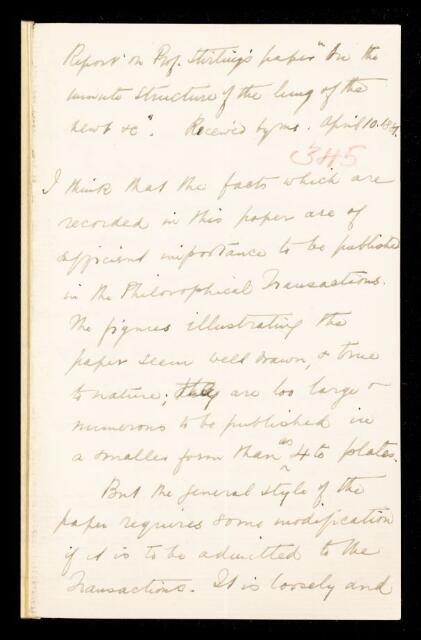 Report on Prof. Stirling's paper "On the
minute structure of the lung of the
newt &c". Received by me. April 10.
345
I think that the facts which are
recorded in this paper are of
sufficient importance to be published
in the Philosophical Transactions.
The figures illustrating the
paper seem well drawn, & true
to nature; they are too large &
numerous to be published in
a smaller form than as 4to plates.
But the general style of the
paper requires some modification
if it is to be admitted to the
Transactions. It is loosely and